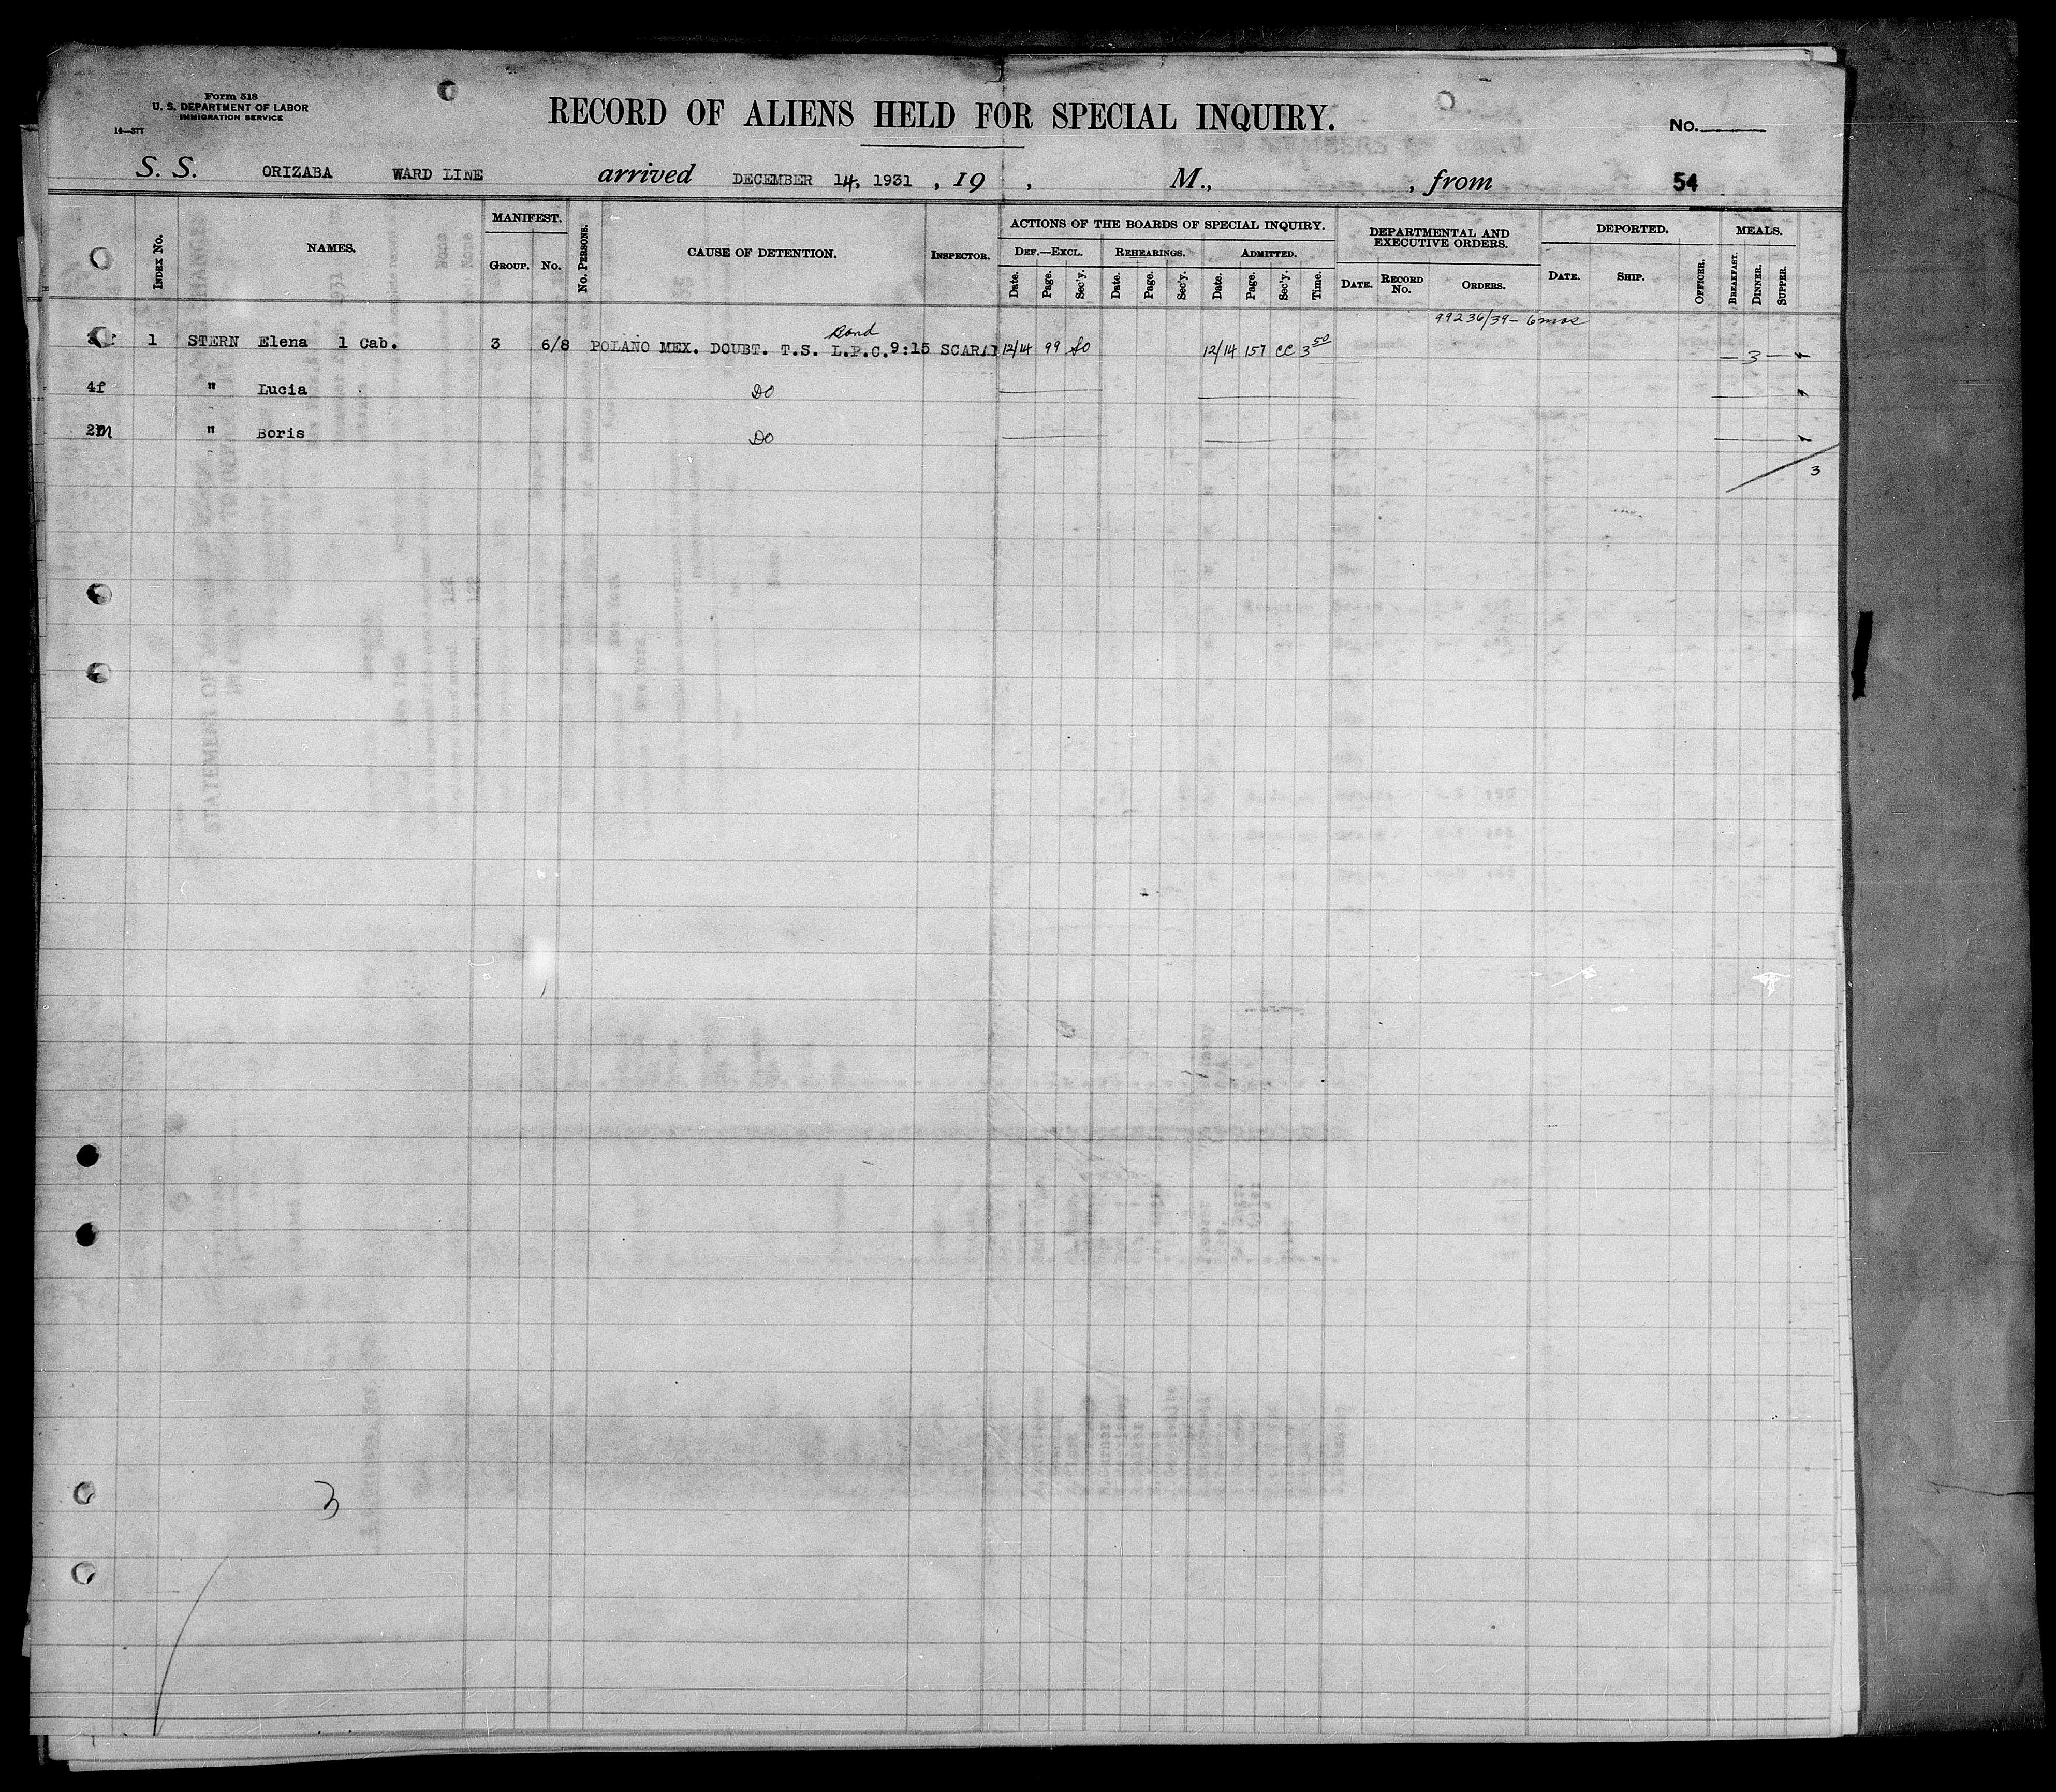 Form 518
U. S. DEPARTMENT OF LABOR
IMMIGRATION SERVICE
14—377
RECORD OF ALIENS HELD FOR SPECIAL INQUIRY.
No.
S. S. ORIZABA WARD LINE arrived DECEMBER 14, 1931 , 19 , M., , from 54
INDEX No. NAMES. MANIFEST. GROUP. No. No. PERSONS. CAUSE OF DETENTION. INSPECTOR.
ACTIONS OF THE BOARDS OF SPECIAL INQUIRY.
DEF.—EXCL. REHEARINGS. ADMITTED.
Date. Page. Sec'y. Date. Page. Sec'y. Date. Page. Sec'y. Time.
DEPARTMENTAL AND EXECUTIVE ORDERS.
DATE. RECORD No. ORDERS.
DEPORTED.
DATE. SHIP. OFFICER.
MEALS.
BREAKFAST. DINNER. SUPPER.
99236/39 - 6 mos
Bond
1 STERN Elena 1 Cab. 3 6/8 POLANO MEX. DOUBT. T.S. L.P.C. 9:15 12/14 99 SO 12/14 157 CC 3 50 — 3 —
4f " Lucia DO
2m " Boris DO
3
3